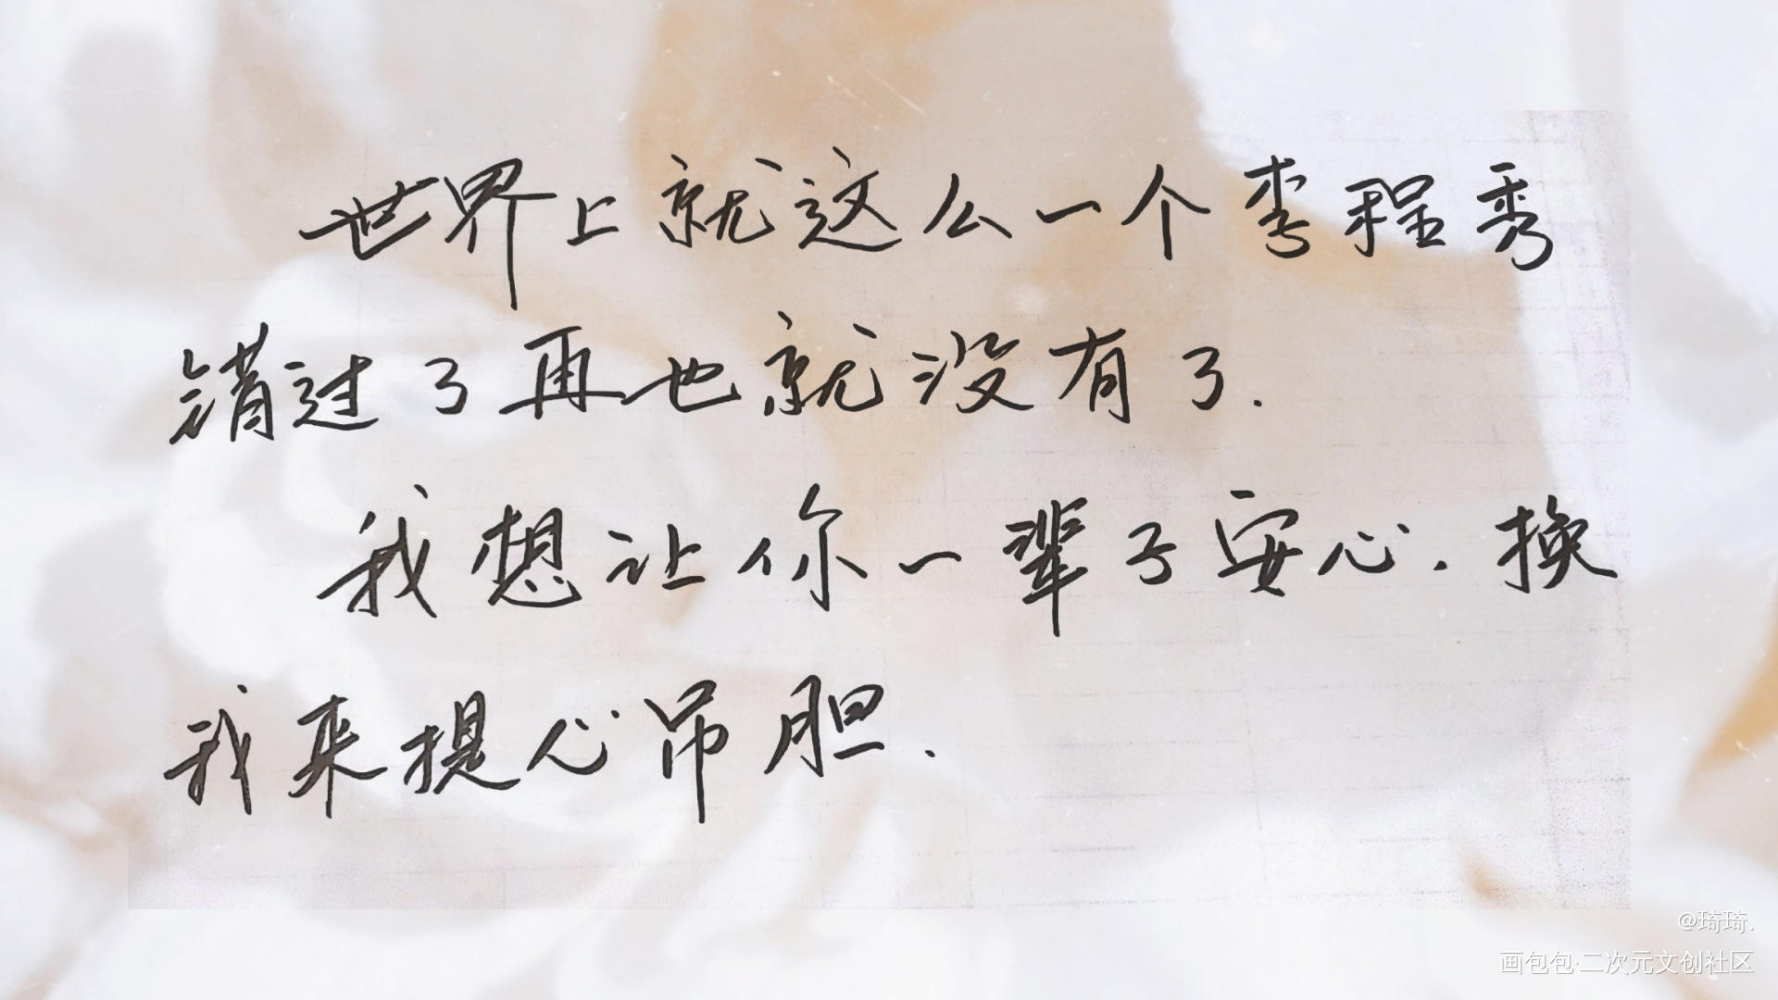 世界上就这么一个李程秀
错过了再也就没有了.
我想让你一辈子安心.换
我来提心吊胆.
@琦琦.
画包包·二次元文创社区